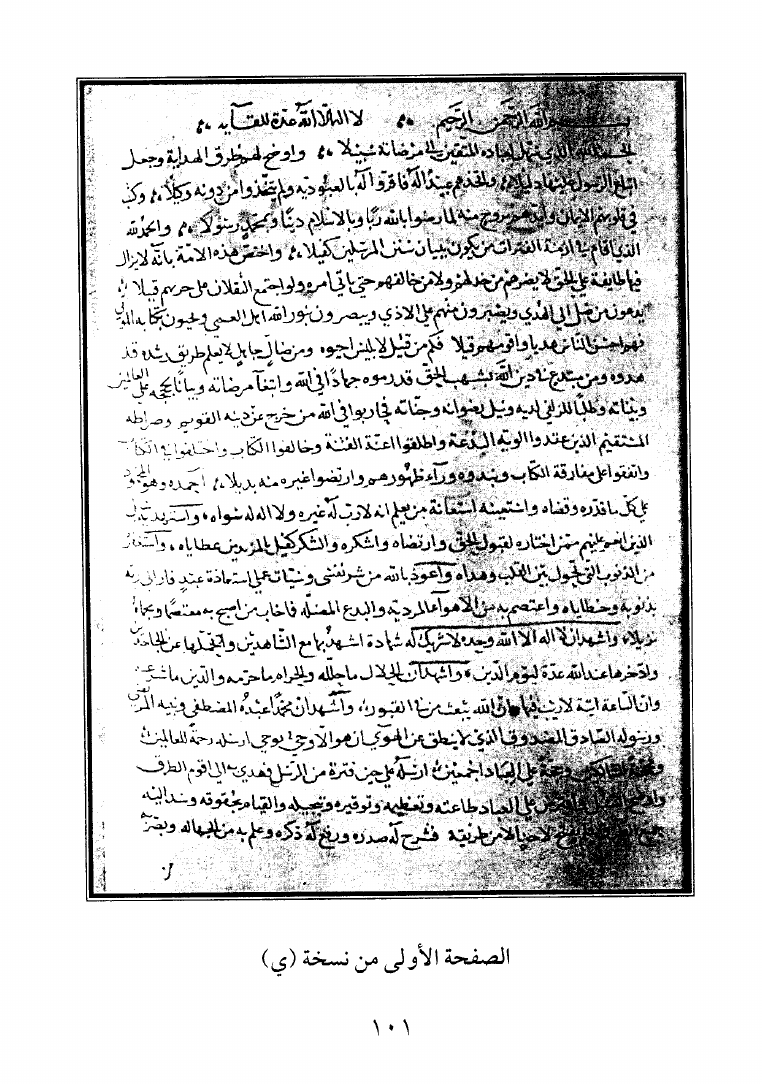 بسم الله الرحمن الرحيم لا اله الا الله عدة للقايه
الحمد لله الذي سهل لعباده المتقين الى مرضاته سبيلا واوضح لهم طرق الهداية وجعل
اتباع الرسول عليها دليلا واتخذهم عبيدا له فاقروا له بالعبودية ولم يتخذوا من دونه وكيلا وكتب
في قلوبهم الايمان وايدهم بروح منه لما رضوا بالله ربا وبالاسلام دينا وبمحمد رسولا والحمد لله
الذي اقام في ازمنة الفترات من يكون ببيان سنن المرسلين كفيلا واختص هذه الامة بانه لا يزال
فيها طايفة على الحق لا يضرهم من خذلهم ولا من خالفهم حتى ياتي امره ولو اجتمع الثقلان على حربهم قبيلا
يدعون من ضل الى الهدي ويصبرون منهم على الاذي ويبصرون بنور الله اهل العمى ويحيون بكتابه الموتى
فهم احسن الناس هديا واقومهم قيلا فكم من قتيل لابليس احيوه ومن ضال جاهل لا يعلم طريق رشده قد
هدوه ومن مبتدع في دين الله بشهب الحق قد رموه جهادا في الله وابتغآ مرضاته وبيانا لحججه على العالمين
وبيناته وطلبا للزلفى لديه ونيل رضوانه وجناته فحاربوا في الله من خرج عن دينه القويم وصراطه
المستقيم الذين عقدوا الوية البدعة واطلقوا اعنة الفتنة وخالفوا الكتاب واختلفوا في الكتاب
واتفقوا على مفارقة الكتاب ونبذوه ورآء ظهورهم وارتضوا غيره منه بديلا احمده وهو المحمود
على كل ما قدره وقضاه واستعينه استعانة من يعلم انه لا رب له غيره ولا اله له سواه واستهديه سبيل
الذين انعم عليهم ممن اختاره لقبول الحق وارتضاه واشكره والشكر كفيل بالمزيد من عطاياه واستغفره
من الذنوب التي تحول بين القلب وهداه واعوذ بالله من شر نفسي وسيئات عملي استعاذة عبد فار الى ربه
بذنوبه وخطاياه واعتصم به من الاهوآء المردية والبدع المضلة فما خاب من اصبح به معتصما وبحماه
نزيلا واشهد ان لا اله الا الله وحده لا شريك له شهادة اشهد بها مع الشاهدين واتحملها عن الجاحدين
وادخرها عند الله عدة ليوم الدين واشهد ان الحلال ما حلله والحرام ما حرمه والدين ما شرعه
وان الساعة اتية لا ريب فيها وان الله يبعث من في القبور واشهد ان محمدا عبده المصطفى ونبيه المرتضى
ورسوله الصادق المصدوق الذي لا ينطق عن الهوى ان هو الا وحي يوحى ارسله رحمة للعالمين
ومحجة للسالكين وحجة على العباد اجمعين ارسله على حين فترة من الرسل فهدى به الى اقوم الطرق
واوضح السبل وافترض على العباد طاعته وتعظيمه وتوقيره وتبجيله والقيام بحقوقه وسد اليه
جميع الطرق فلم يفتح لاحد الا من طريقه فشرح له صدره ورفع له ذكره وعلم به من الجهالة وبصر
الصفحة الأولى من نسخة (ي)
١٠١